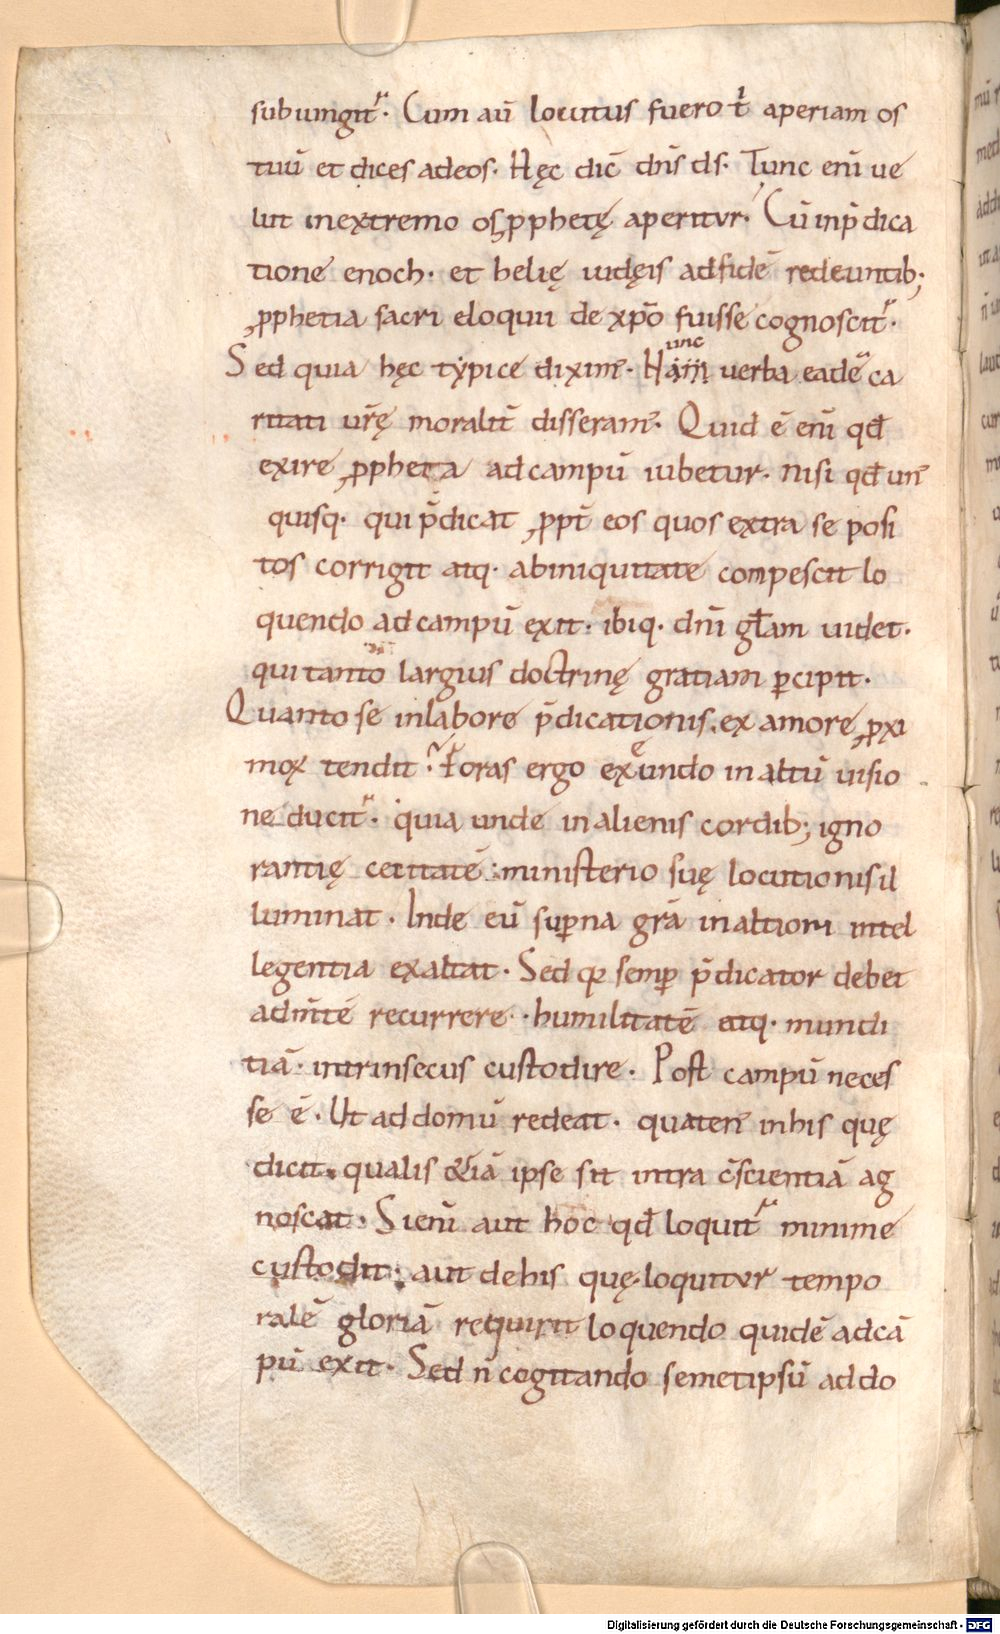 subiungit᷑. Cum aū locutus fuero t̄ aperiam os
tuū et dices ad eos. Hęc dic̄ dn̄s ds̄. Tunc eni̅ ue
lut in extremo os ꝓphetę aperitur. Cū in p̄dica
tione enoch. et helię iudęis ad fidē redeuntib;
ꝓphetia sacri eloquii de xp̄o fuisse cognoscit᷑.
Sed quia hęc typice diximꝰ. Hunc uerba eadē ca
ritati ur̄ę moralit̄ disseramꝰ. Quid ē eni̅ qd̄
exire ꝓpheta ad campū iubetur. nisi qd̄ unꝰ
quisq. qui p̄dicat ꝓpt̄ eos quos extra se posi
tos corrigit atq. ab iniquitate conpescit lo
quendo ad campū exit. ibiq. dn̄i gl̄am uidet.
qui tanto largius doctrinę gratiam ꝑcipit.
Quanto se in labore p̄dicationis. ex amore ꝓxi
moꝝ tendit. Foras ergo exeundo in altū uisio
ne ducit᷑. quia unde in alienis cordib; igno
rantię cecitatē ministerio suę locutionis il
luminat. Inde eū suꝑna gr̄a in altiori intel
legentia exaltat. Sed qꝛ semꝑ p̄dicator debet
ad m̄tē recurrere. humilitatē atq. mundi
tiā. intrinsecus custodire. Post campū neces
se ē. Ut ad domū redeat. quatenꝰ in his quę
dicit. qualis &iā ipse sit intra c̄scientiā ag
noscat. Si eni̅ aut hoc qd̄ loquit᷑ minime
custodit. aut de his quę loquitur tempo
ralē gloriā requirit loquendo quidē ad cā
pū exit. Sed n̄ cogitando semetipsū ad do
Digitalisierung gefördert durch die Deutsche Forschungsgemeinschaft - DFG